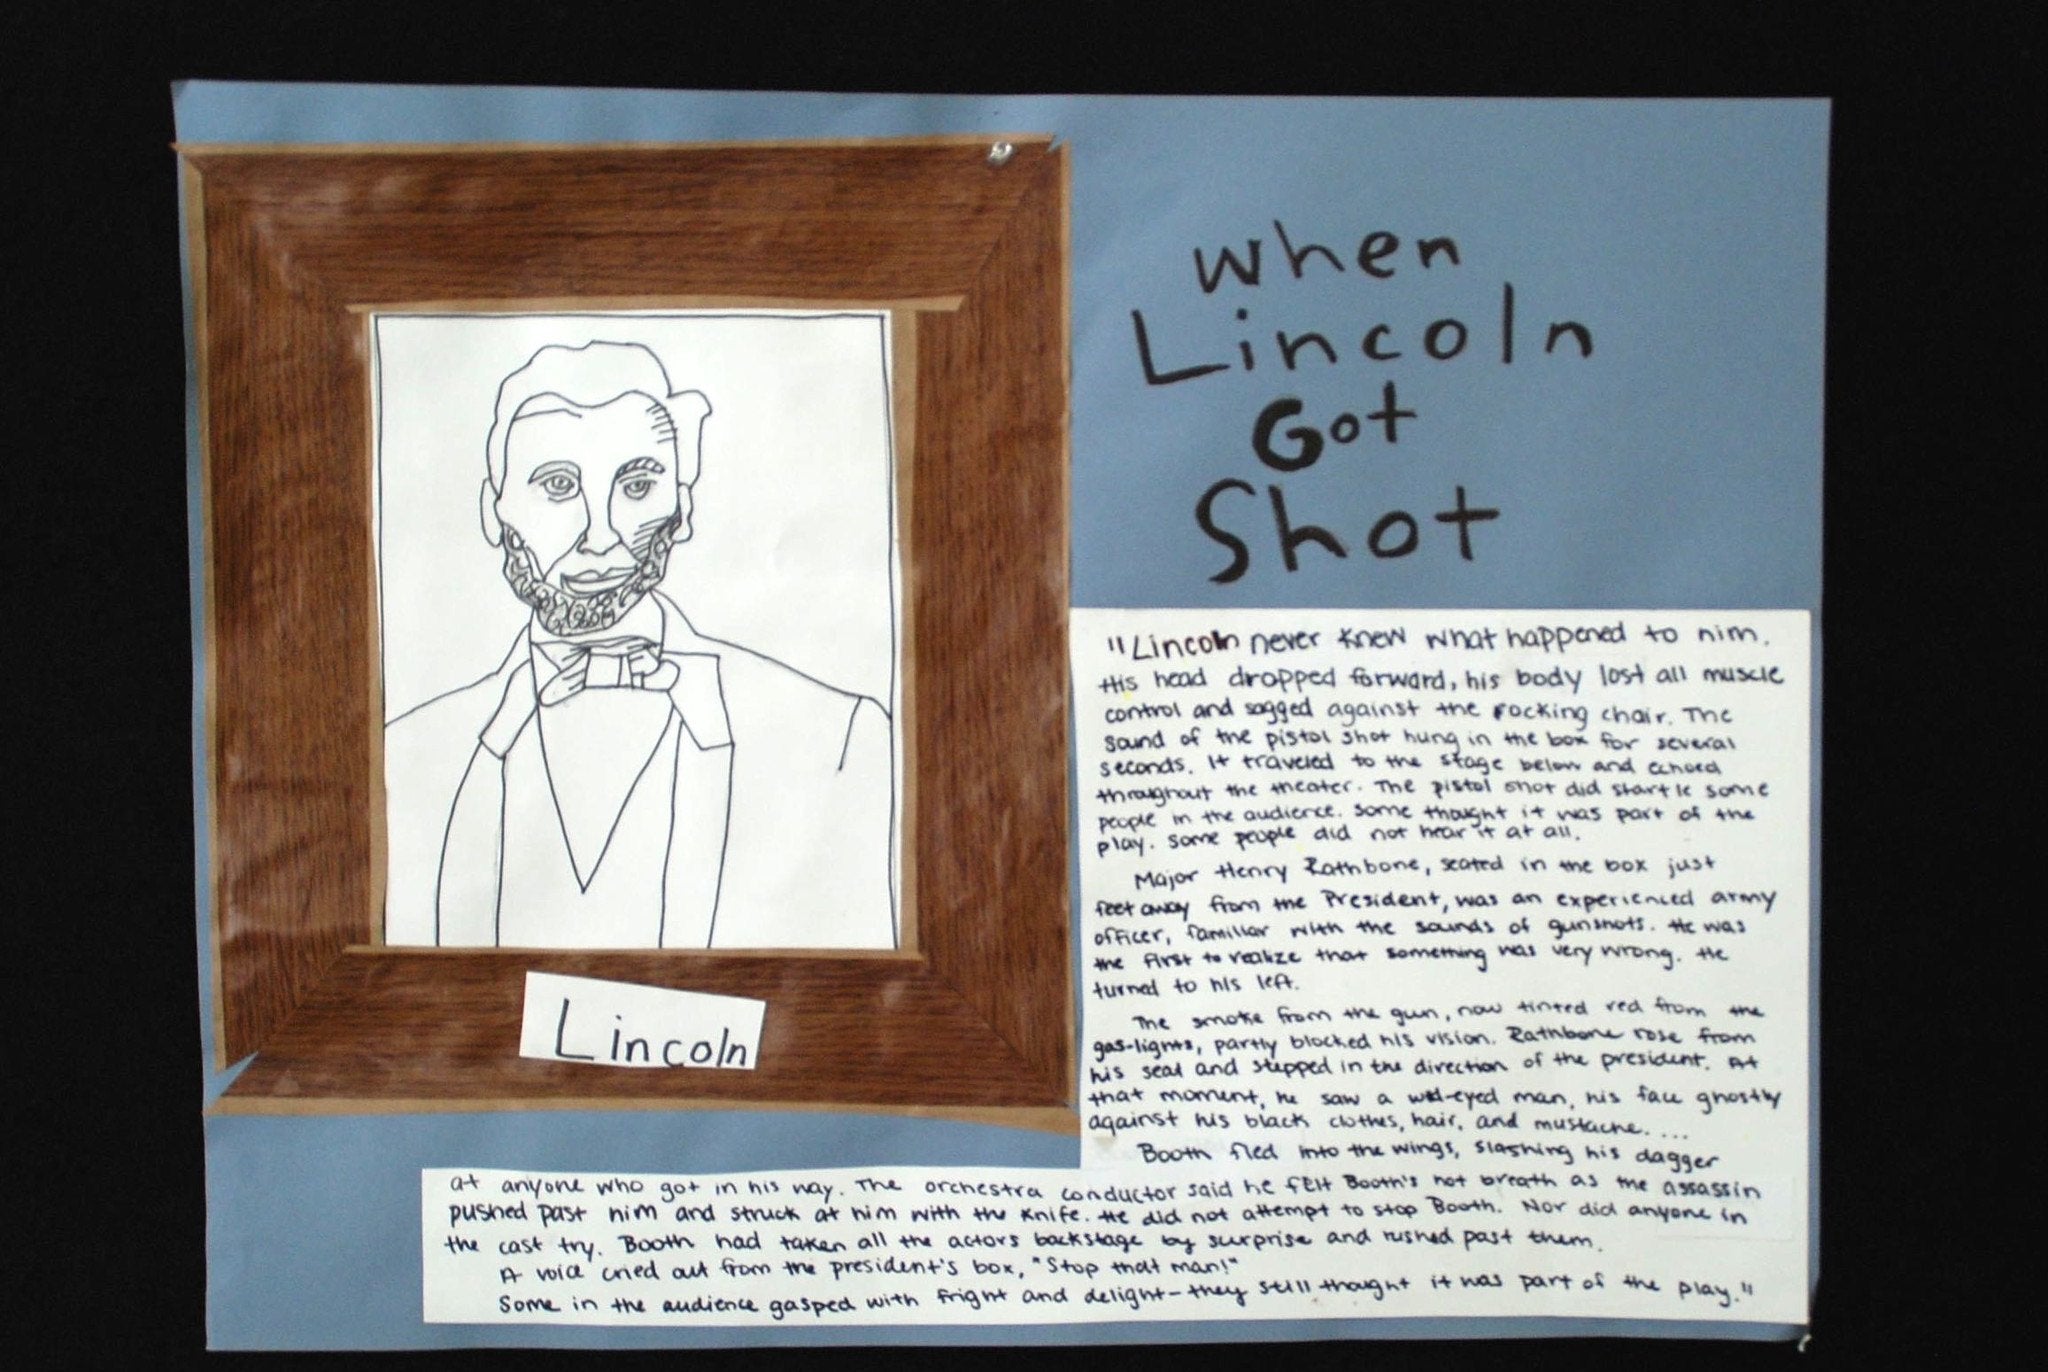 When
Lincoln
Got
Shot
Lincoln
"Lincoln never knew what happened to him.
His head dropped forward, his body lost all muscle
control and sagged against the rocking chair. The
sound of the pistol shot hung in the box for several
seconds. It traveled to the stage below and echoed
throughout the theater. The pistol shot did startle some
people in the audience. Some thought it was part of the
play. Some people did not hear it at all.
Major Henry Rathbone, seated in the box just
feet away from the President, was an experienced army
officer, familiar with the sounds of gunshots. He was
the first to realize that something was very wrong. He
turned to his left.
The smoke from the gun, now tinted red from the
gas-lights, partly blocked his vision. Rathbone rose from
his seat and stepped in the direction of the president. At
that moment, he saw a wild-eyed man, his face ghostly
against his black clothes, hair, and mustache. ...
Booth fled into the wings, slashing his dagger
at anyone who got in his way. The orchestra conductor said he felt Booth's hot breath as the assassin
pushed past him and struck at him with the knife. He did not attempt to stop Booth. Nor did anyone in
the cast try. Booth had taken all the actors backstage by surprise and rushed past them.
A voice cried out from the president's box, "Stop that man!"
Some in the audience gasped with fright and delight - they still thought it was part of the play."